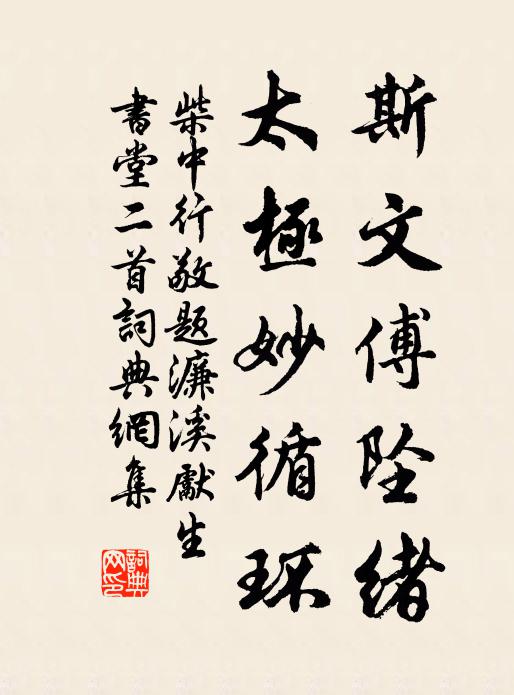 斯文傅坠绪
太極妙循环
柴中行敬题濂溪獻生
書堂二首詞典網集
詞典网印